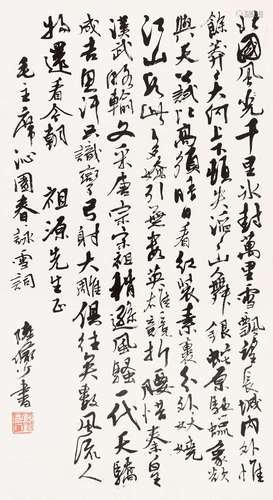 北國風光千里冰封萬里雪飄望長城內外惟
餘莽々大河上下頓失滔々山舞銀蛇原馳蠟象欲
與天公試比高須晴日看紅裝素裹分外妖嬈
江山如此多嬌引無數英雄競折腰惜秦皇
漢武略輸文采唐宗宋祖稍遜風騷一代天驕
成吉思汗只識彎弓射大雕俱往矣數風流人
物還看今朝 祖源先生正
毛主席沁園春詠雪詞
書